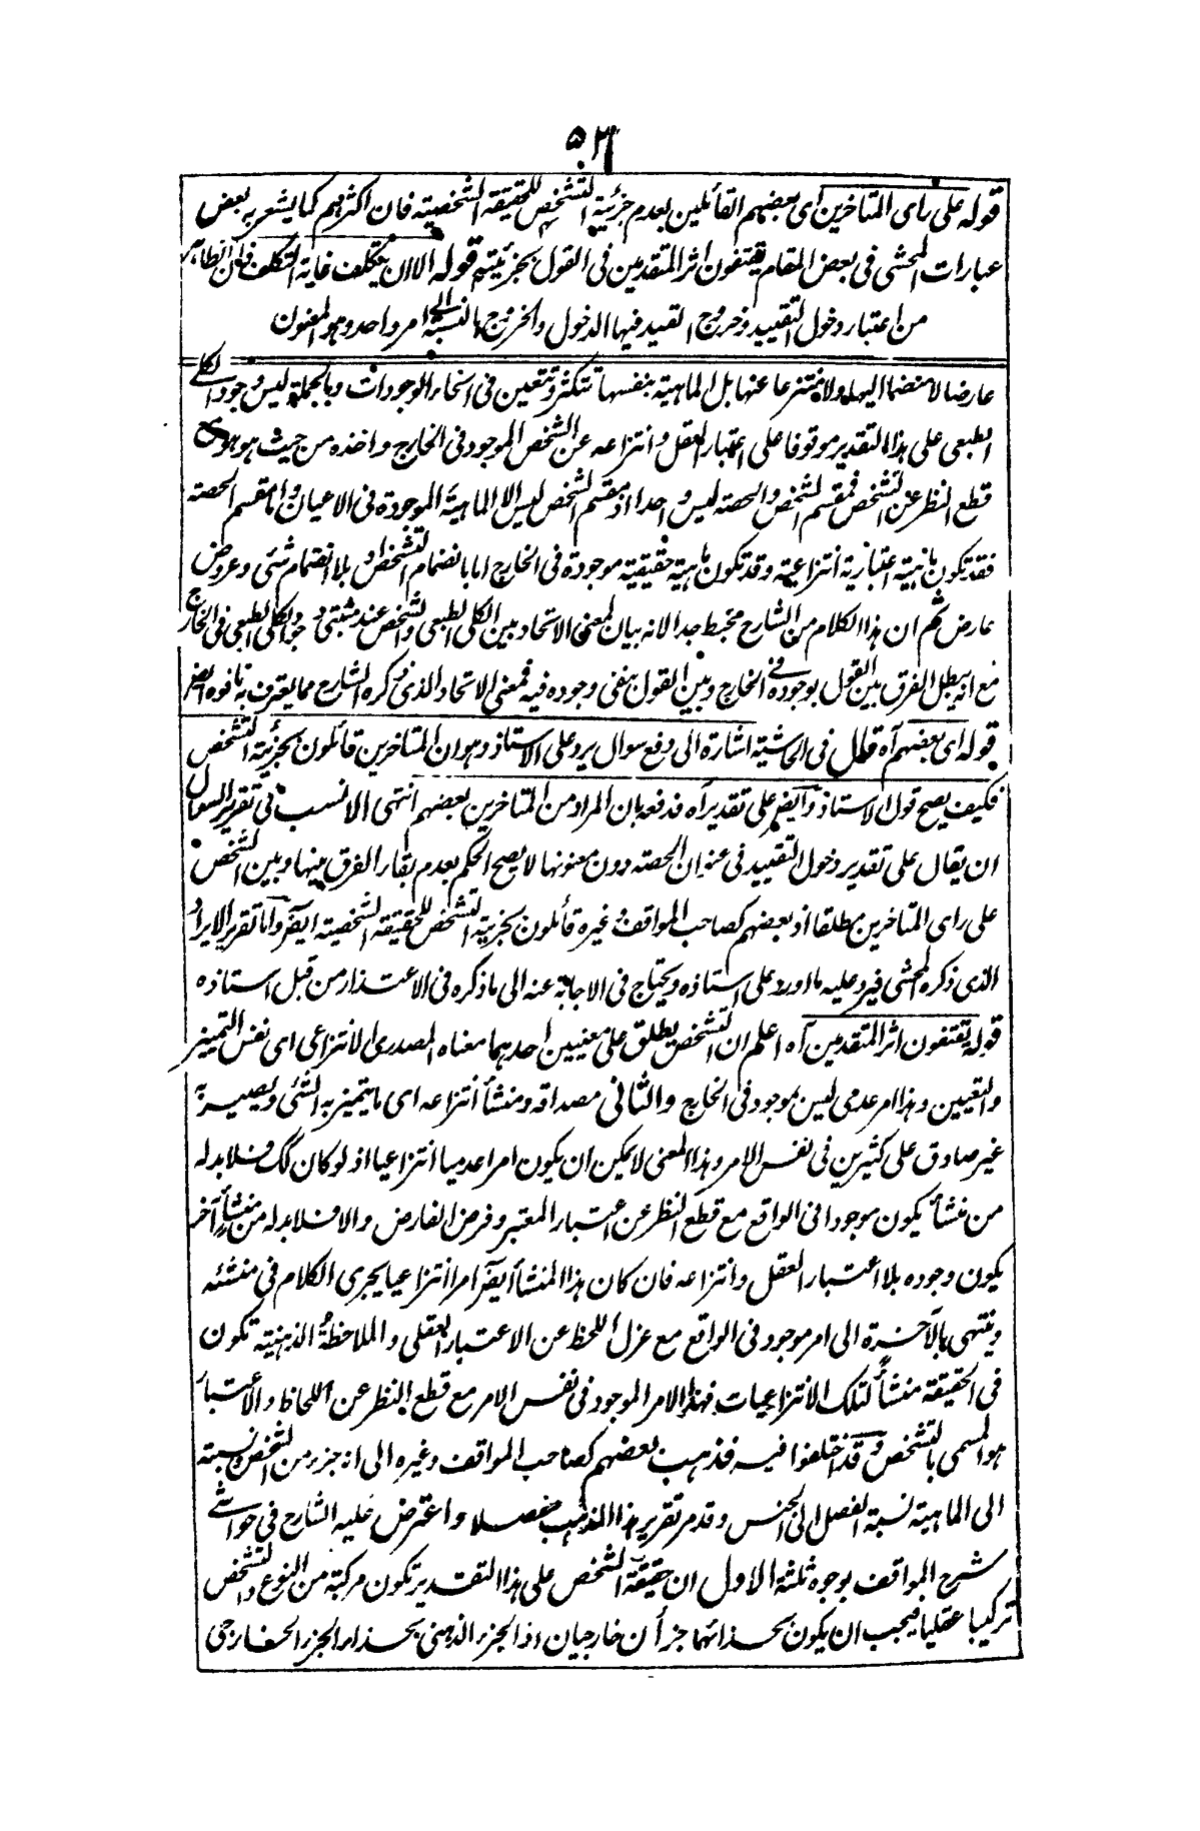 ۵۳
قوله على راى المتاخرين اى بعضهم القائلين بعدم جزئية التشخص للحقيقة الشخصية فان اكثرهم كما يشعر به بعض
عبارات المحشى فى بعض المقام يقتفون اثر المتقدمين فى القول بجزئيته قوله الا ان يتكلف غاية التكلف فان الظاهر
من اعتبار دخول التقييد وخروج القيد فيها الدخول والخروج بالنسبة الى امر واحد وهو المعنون
عارضا لا منضما اليها ولا منتزعا عنها بل الماهية بنفسها تتكثر وتتعين فى انحاء الموجودات وبالجملة ليس وجود الكلى
الطبعى على هذا التقدير موقوفا على اعتبار العقل وانتزاعه عن الشخص الموجود فى الخارج واخذه من حيث هو هو مع
قطع النظر عن التشخص فمقسم الشخص والحصة ليس واحدا اذ مقسم الشخص ليس الا الماهية الموجودة فى الاعيان واما مقسم الحصة
فقد تكون ماهية اعتبارية انتزاعية وقد تكون ماهية حقيقية موجودة فى الخارج اما بانضمام التشخص او بلا انضمام شئ وعروض
عارض ثم ان هذا الكلام من الشارح مخبط جدا لانه بيان لمعنى الاتحاد بين الكلى الطبعى والشخص عند مثبتى وجود الكلى الطبعى فى الخارج
مع انه يبطل الفرق بين القول بوجوده فى الخارج وبين القول بنفى وجوده فيه فمعنى الاتحاد الذى ذكره الشارح مما يعترف به نافوه ايضا
قوله اى بعضهم آه قال فى الحاشية اشارة الى دفع سوال يرد على الاستاذ وهو ان المتاخرين قائلون بجزئية التشخص
فكيف يصح قول الاستاذ وايضا على تقدير آه فدفعه بان المراد من المتاخرين بعضهم انتهى الانسب فى تقرير السوال
ان يقال على تقدير دخول التقييد فى عنوان الحصة دون معنونها لا يصح الحكم بعدم بقاء الفرق بينها وبين الشخص
على راى المتاخرين مطلقا اذ بعضهم كصاحب المواقف وغيره قائلون بجزئية التشخص للحقيقة الشخصية ايضا واما تقرير الايراد
الذى ذكره المحشى فيرد عليه ما اورد على استاذه ويحتاج فى الاجابة عنه الى ما ذكره فى الاعتذار من قبل استاذه
قوله يقتفون اثر المتقدمين آه اعلم ان التشخص يطلق على معنيين احدهما معناه المصدرى الانتزاعى اى نفس التميز
والتعيين وهذا امر عدمى ليس بموجود فى الخارج والثانى مصداقه ومنشأ انتزاعه اى ما يتميز به الشئ ويصير به
غير صادق على كثيرين فى نفس الامر وهذا المعنى لا يمكن ان يكون امرا عدميا انتزاعيا اذ لو كان كك فلا بد له
من منشأ يكون موجودا فى الواقع مع قطع النظر عن اعتبار المعتبر وفرض الفارض والا فلا بد له من منشأ آخر
يكون وجوده بلا اعتبار العقل وانتزاعه فان كان هذا المنشأ ايضا امرا انتزاعيا يجرى الكلام فى منشئه
وينتهى بالآخرة الى امر موجود فى الواقع مع عزل اللحظ عن الاعتبار العقلى والملاحظة الذهنية تكون
فى الحقيقة منشأ لتلك الانتزاعيات فهذا الامر الموجود فى نفس الامر مع قطع النظر عن اللحاظ والاعتبار
هو المسمى بالتشخص وقد اختلفوا فيه فذهب بعضهم كصاحب المواقف وغيره الى انه جزء من الشخص نسبته
الى الماهية نسبة الفصل الى الجنس وقد مر تقرير هذا المذهب مفصلا واعترض عليه الشارح فى حواشى
شرح المواقف بوجوه ثلثة الاول ان حقيقة الشخص على هذا التقدير تكون مركبة من النوع والتشخص
تركيبا عقليا فيجب ان يكون بحذائهما جزأن خارجيان اذ الجزء الذهنى بحذاء الجزء الخارجى